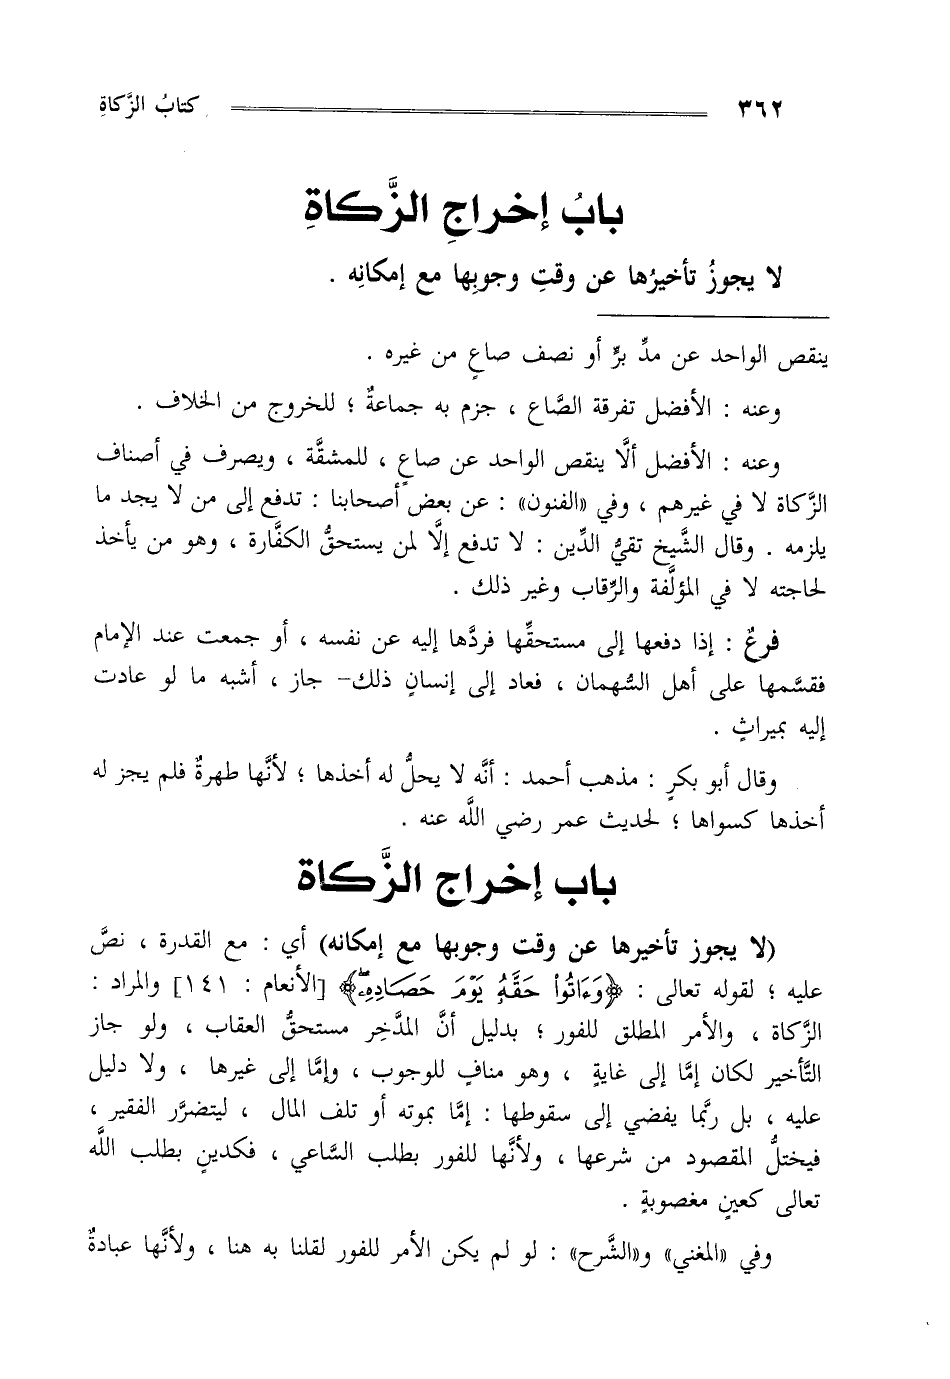 ٣٦٢ كتابُ الزَّكاةِ
بابُ إخراجِ الزَّكاةِ
لا يجوزُ تأخيرُها عن وقتِ وجوبِها مع إمكانِه .
ينقص الواحد عن مدِّ برٍّ أو نصف صاعٍ من غيره .
وعنه : الأفضل تفرقة الصَّاع ، جزم به جماعةٌ ؛ للخروج من الخلاف .
وعنه : الأفضل ألَّا ينقص الواحد عن صاعٍ ، للمشقَّة ، ويصرف في أصناف
الزَّكاة لا في غيرهم ، وفي «الفنون» : عن بعض أصحابنا : تدفع إلى من لا يجد ما
يلزمه . وقال الشَّيخ تقيُّ الدِّين : لا تدفع إلَّا لمن يستحقُّ الكفَّارة ، وهو من يأخذ
لحاجته لا في المؤلَّفة والرِّقاب وغير ذلك .
فرعٌ : إذا دفعها إلى مستحقِّها فردَّها إليه عن نفسه ، أو جمعت عند الإمام
فقسَّمها على أهل السُّهمان ، فعاد إلى إنسانٍ ذلك- جاز ، أشبه ما لو عادت
إليه بميراثٍ .
وقال أبو بكرٍ : مذهب أحمد : أنَّه لا يحلُّ له أخذها ؛ لأنَّها طهرةٌ فلم يجز له
أخذها كسواها ؛ لحديث عمر رضي اللَّه عنه .
باب إخراج الزَّكاة
(لا يجوز تأخيرها عن وقت وجوبها مع إمكانه) أي : مع القدرة ، نصَّ
عليه ؛ لقوله تعالى : ﴿وَءَاتُواْ حَقَّهُۥ يَوۡمَ حَصَادِهِۦۖ﴾ [الأنعام : ١٤١] والمراد :
الزَّكاة ، والأمر المطلق للفور ؛ بدليل أنَّ المدَّخِر مستحقُّ العقاب ، ولو جاز
التَّأخير لكان إمَّا إلى غايةٍ ، وهو منافٍ للوجوب ، وإمَّا إلى غيرها ، ولا دليل
عليه ، بل ربَّما يفضي إلى سقوطها : إمَّا بموته أو تلف المال ، ليتضرَّر الفقير ،
فيختلُّ المقصود من شرعها ، ولأنَّها للفور بطلب السَّاعي ، فكدينٍ بطلب اللَّه
تعالى كعينٍ مغصوبةٍ .
وفي «المغني» و«الشَّرح» : لو لم يكن الأمر للفور لقلنا به هنا ، ولأنَّها عبادةٌ